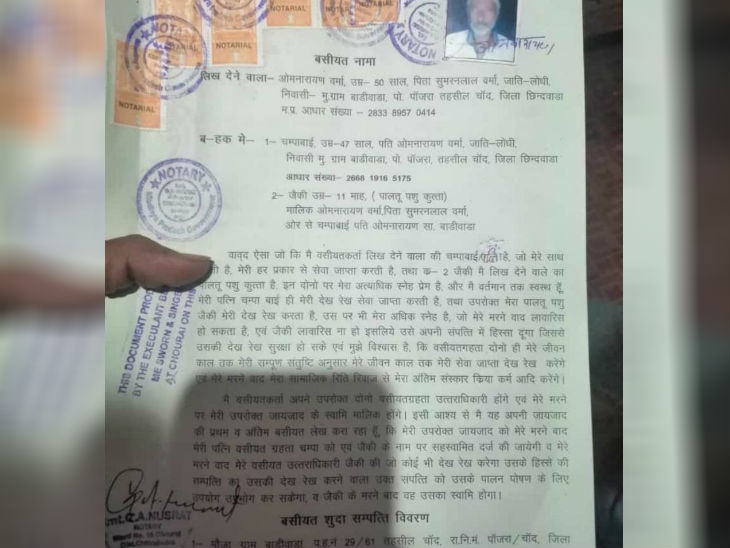 NOTARIAL
NOTARIAL
NOTARIAL
NOTARY
NOTARIAL
NOTARY
NOTARIAL
बसीयत नामा
लिख देने वाला– ओमनारायण वर्मा, उम्र– 50 साल, पिता सुमरनलाल वर्मा, जाति–लोधी,
निवासी– मु.ग्राम बाडीवाडा, पो. पॉजरा तहसील चॉद, जिला छिन्दवाडा
म.प्र. आधार संख्या – 2833 8957 0414
ब–हक मे– 1– चम्पाबाई, उम्र–47 साल, पति ओमनारायण वर्मा, जाति–लोधी,
निवासी मु. ग्राम बाडीवाडा, पो. पॉजरा, तहसील चॉद, जिला छिन्दवाडा
आधार संख्या– 2668 1916 5175
NOTARY
Madhya Pradesh Government
2– जैकी उम्र– 11 माह, ( पालतू पशु कुत्ता)
मालिक ओमनारायण वर्मा,पिता सुमरनलाल वर्मा,
ओर से चम्पाबाई पति ओमनारायण सा. बाडीवाडा
यावद ऐसा जो कि मै वसीयतकर्ता लिख देने वाला की चम्पाबाई है, जो मेरे साथ
है, मेरी हर प्रकार से सेवा जाप्ता करती है, तथा क– 2 जैकी मै लिख देने वाले का
पालतू पशु कुत्ता है. इन दोनो पर मेरा अत्याधिक स्नेह प्रेम है, और मै वर्तमान तक स्वस्थ हूँ,
मेरी पत्नि चम्पा बाई ही मेरी देख रेख सेवा जाप्ता करती है, तथा उपरोक्त मेरा पालतू पशु
जैकी मेरी देख रेख करता है, उस पर भी मेरा अधिक स्नेह है, जो मेरे मरने वाद लावारिस
हो सकता है, एवं जैकी लावारिस ना हो इसलिये उसे अपनी संपत्ति में हिस्सा दूंगा जिससे
उसकी देख रेख सुरक्षा हो सके एवं मुझे विश्वास है, कि वसीयतगहता दोनो ही मेरे जीवन
काल तक मेरी सम्पूण संतुष्टि अनुसार मेरे जीवन काल तक मेरी सेवा जाप्ता देख रेख करेगे
एवं मेरे मरने वाद मेरा सामाजिक रिति रिवाज से मेरा अंतिम संस्कार किया कर्म आदि करेगे।
THIS DOCUMENT PROD
BY THE EXECULANT BE
ME SWORN & SINGE
AT CHOURAI ON THIS
मै वसीयतकर्ता अपने उपरोक्त दोनो वसीयतग्रहता उत्तराधिकारी होंगे एवं मेरे मरने
पर मेरी उपरोक्त जायजाद के स्वामि मालिक होंगे। इसी आश्य से मै यह अपनी जायजाद
की प्रथम व अंतिम बसीयत लेख करा रहा हूँ, कि मेरी उपरोक्त जायजाद को मेरे मरने बाद
मेरी पत्नि वसीयत ग्रहता चम्पा को एवं जैकी के नाम पर सहस्वामित दर्ज की जायेगी व मेरे
मरने वाद मेरे वसीयत उत्तराधिकारी जैकी की जो कोई भी देख रेख करेगा उसके हिस्से की
सम्पत्ति का उसकी देख रेख करने वाला उक्त संपत्ति को उसके पालन पोषण के लिए
उपयोग उपभोग कर सकेगा, व जैकी के मरने बाद वह उसका स्वामि होगा।
C.A.NUSRAT
NOTARY
बसीयत शुदा सम्पत्ति विवरण
1– मौजा ग्राम बाडीवाडा प.ह.नं 29/61 तहसील चॉद, रा.नि.मं. पॉजरा/चॉद, जिला